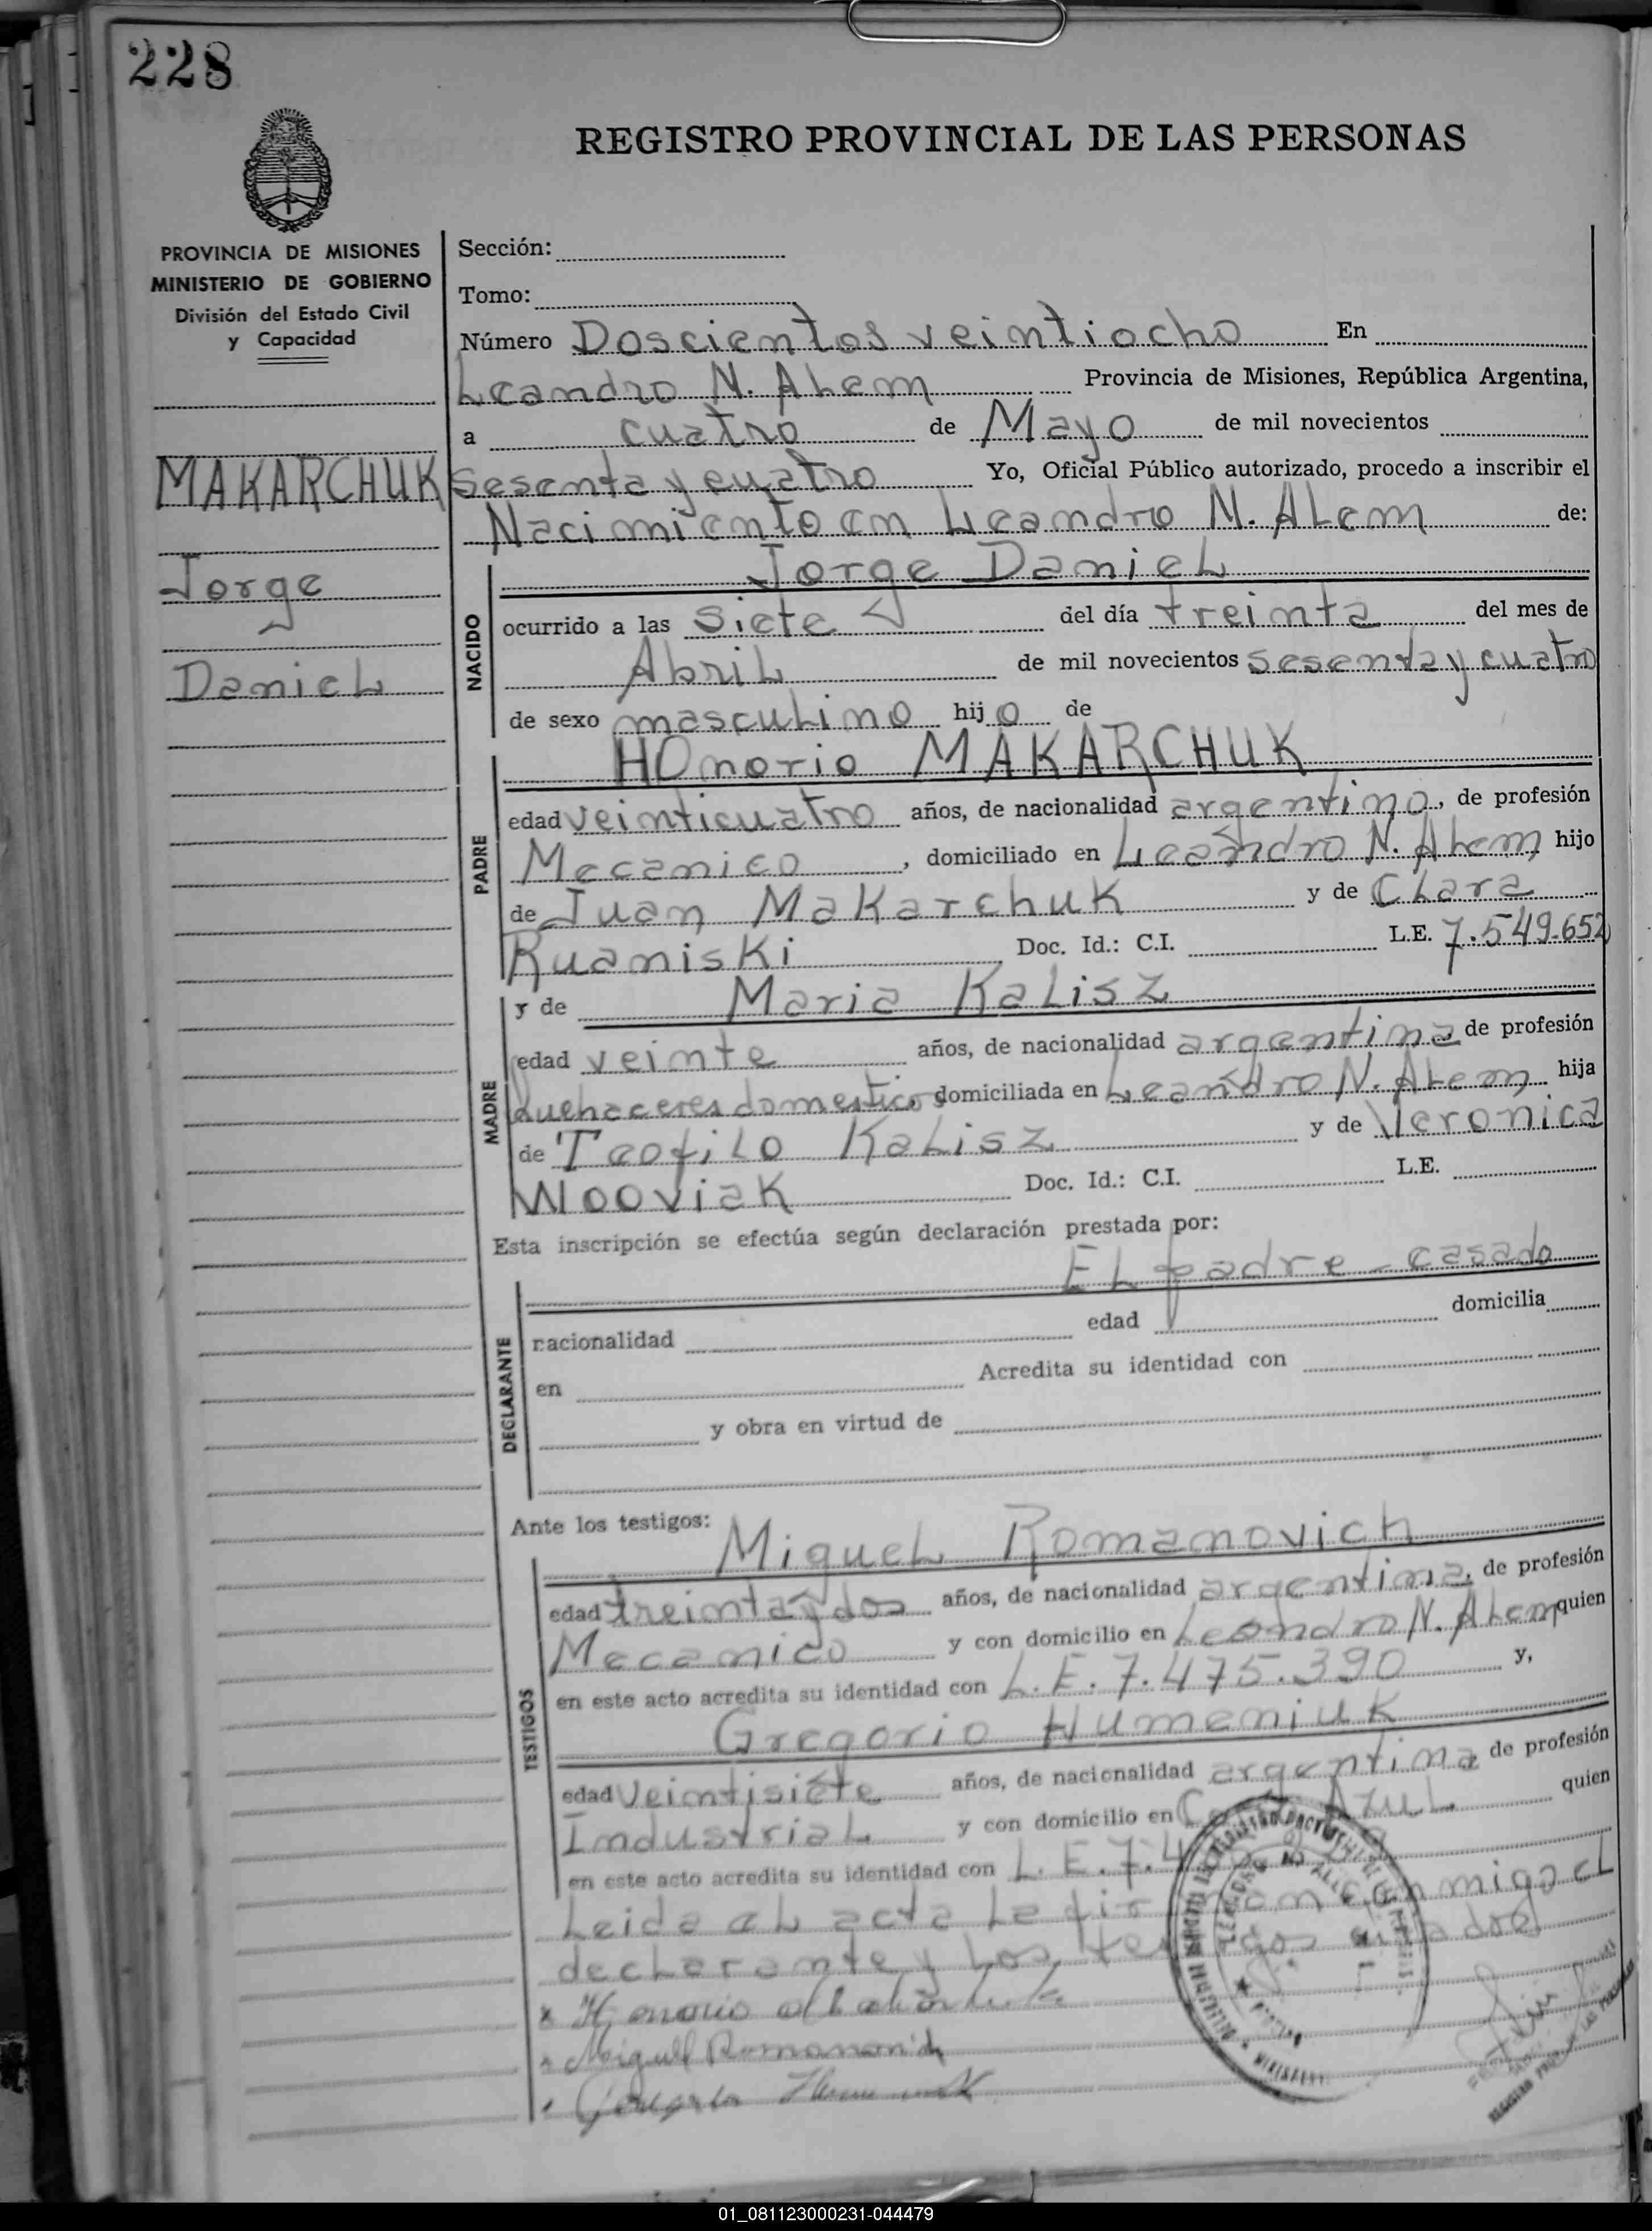 228
REGISTRO PROVINCIAL DE LAS PERSONAS
PROVINCIA DE MISIONES
MINISTERIO DE GOBIERNO
División del Estado Civil
y Capacidad
MAKARCHUK
Jorge
Daniel
Sección:
Tomo:
Número Doscientos veintiocho En
Leandro N. Alem Provincia de Misiones, República Argentina,
a cuatro de Mayo de mil novecientos
Sesenta y cuatro Yo, Oficial Público autorizado, procedo a inscribir el
Nacimiento en Leandro N. Alem de:
NACIDO
Jorge Daniel
ocurrido a las siete del día treinta del mes de
Abril de mil novecientos sesenta y cuatro
de sexo masculino hijo de
PADRE
HOnorio MAKARCHUK
edad veinticuatro años, de nacionalidad argentino, de profesión
Mecanico, domiciliado en Leandro N. Alem hijo
de Juan Makarchuk y de Clara
Ruaniski Doc. Id.: C.I. L.E. 7.549.652
MADRE
y de Maria Kalisz
edad veinte años, de nacionalidad argentina de profesión
Quehaceres domesticos domiciliada en Leandro N. Alem hija
de Teofilo Kalisz y de Veronica
Wooviak Doc. Id.: C.I. L.E.
Esta inscripción se efectúa según declaración prestada por:
El padre - casado
DECLARANTE
nacionalidad edad domicilia
en Acredita su identidad con
y obra en virtud de
Ante los testigos:
TESTIGOS
Miguel Romanovich
edad treinta y dos años, de nacionalidad argentina, de profesión
Mecanico y con domicilio en Leandro N. Alem quien
en este acto acredita su identidad con L.E. 7.475.390 y,
Gregorio Humeniuk
edad veintisiete años, de nacionalidad argentina de profesión
Industrial y con domicilio en Azul quien
en este acto acredita su identidad con L.E. 7.4
Leida el acta la firman conmigo el
declarante y los testigos citados
Honorio Makarchuk
Miguel Romanovich
01_081123000231-044479